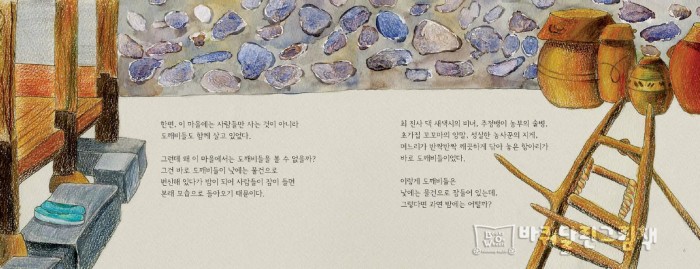 한편, 이 마을에는 사람들만 사는 것이 아니라
도깨비들도 함께 살고 있었다.
그런데 왜 이 마을에서는 도깨비들을 볼 수 없을까?
그건 바로 도깨비들이 낮에는 물건으로
변신해 있다가 밤이 되어 사람들이 잠이 들면
본래 모습으로 돌아오기 때문이다.
최 진사 댁 새색시의 비녀, 주정뱅이 농부의 술병,
초가집 꼬꼬마의 양말, 성실한 농사꾼의 지게,
며느리가 반짝반짝 깨끗하게 닦아 놓은 항아리가
바로 도깨비들이었다.
이렇게 도깨비들은
낮에는 물건으로 잠들어 있는데,
그렇다면 과연 밤에는 어떨까?
바퀴달린그림책